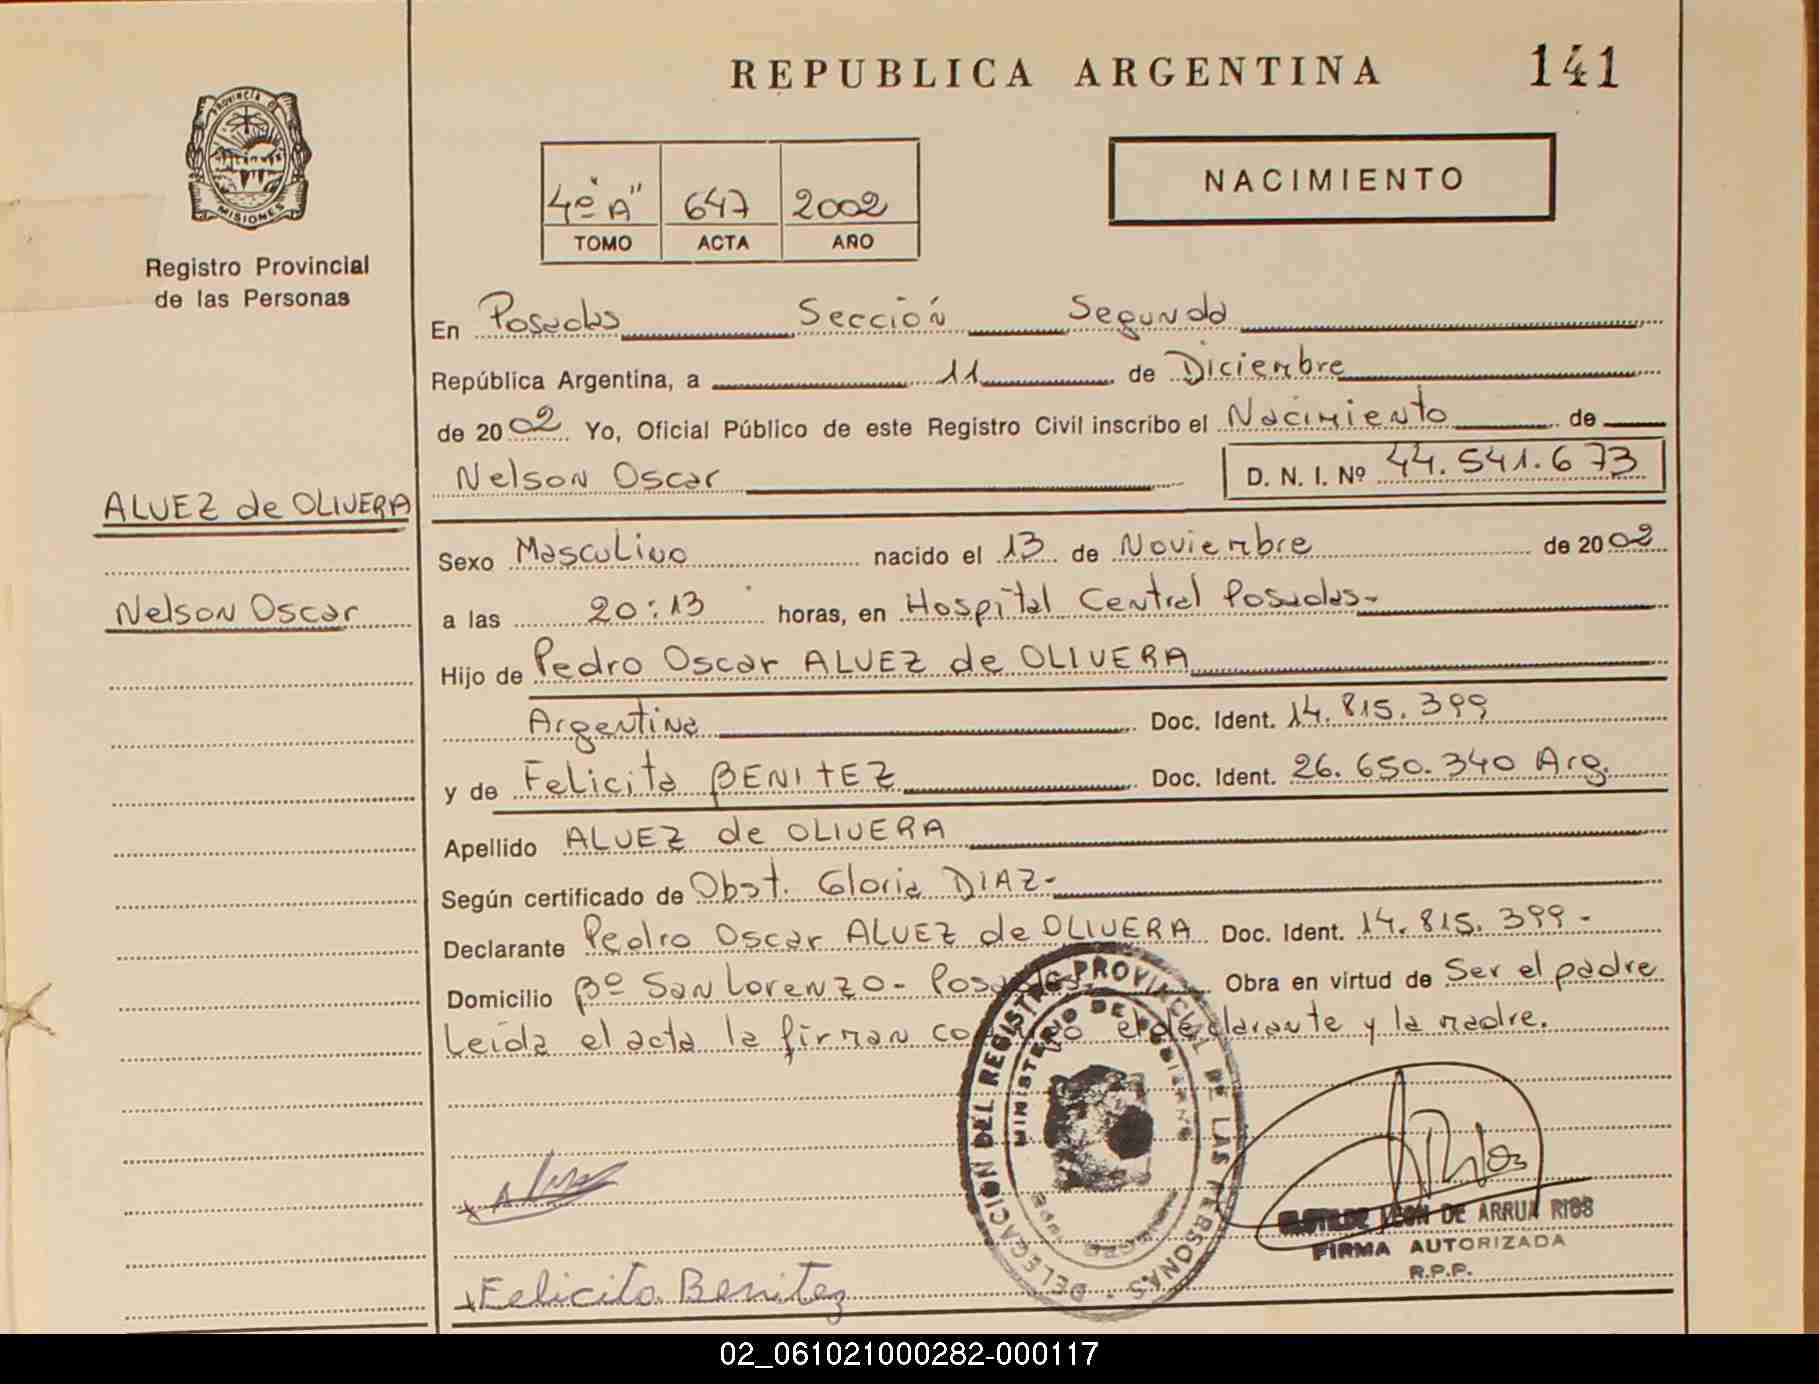 REPUBLICA ARGENTINA 141
PROVINCIA DE
MISIONES
Registro Provincial
de las Personas
4º "A" 647 2002
TOMO ACTA AÑO
NACIMIENTO
En Posadas Sección Segunda
República Argentina, a 11 de Diciembre
de 2002 Yo, Oficial Público de este Registro Civil inscribo el Nacimiento de
Nelson Oscar D. N. I. Nº 44.541.673
ALVEZ de OLIVERA
Nelson Oscar
Sexo Masculino nacido el 13 de Noviembre de 2002
a las 20:13 horas, en Hospital Central Posadas-
Hijo de Pedro Oscar ALVEZ de OLIVERA
Argentina Doc. Ident. 14.815.399
y de Felicita BENITEZ Doc. Ident. 26.650.340 Arg.
Apellido ALVEZ de OLIVERA
Según certificado de Obst. Gloria DIAZ-
Declarante Pedro Oscar ALVEZ de OLIVERA Doc. Ident. 14.815.399-
Domicilio Bº San Lorenzo - Posadas. Obra en virtud de Ser el padre
Leída el acta la firman conmigo el declarante y la madre.
DELEGACION DEL REGISTRO PROVINCIAL DE LAS PERSONAS
MINISTERIO DE GOBIERNO
Felicita Benitez
LEON DE ARRUA RIOS
FIRMA AUTORIZADA
R.P.P.
02_061021000282-000117